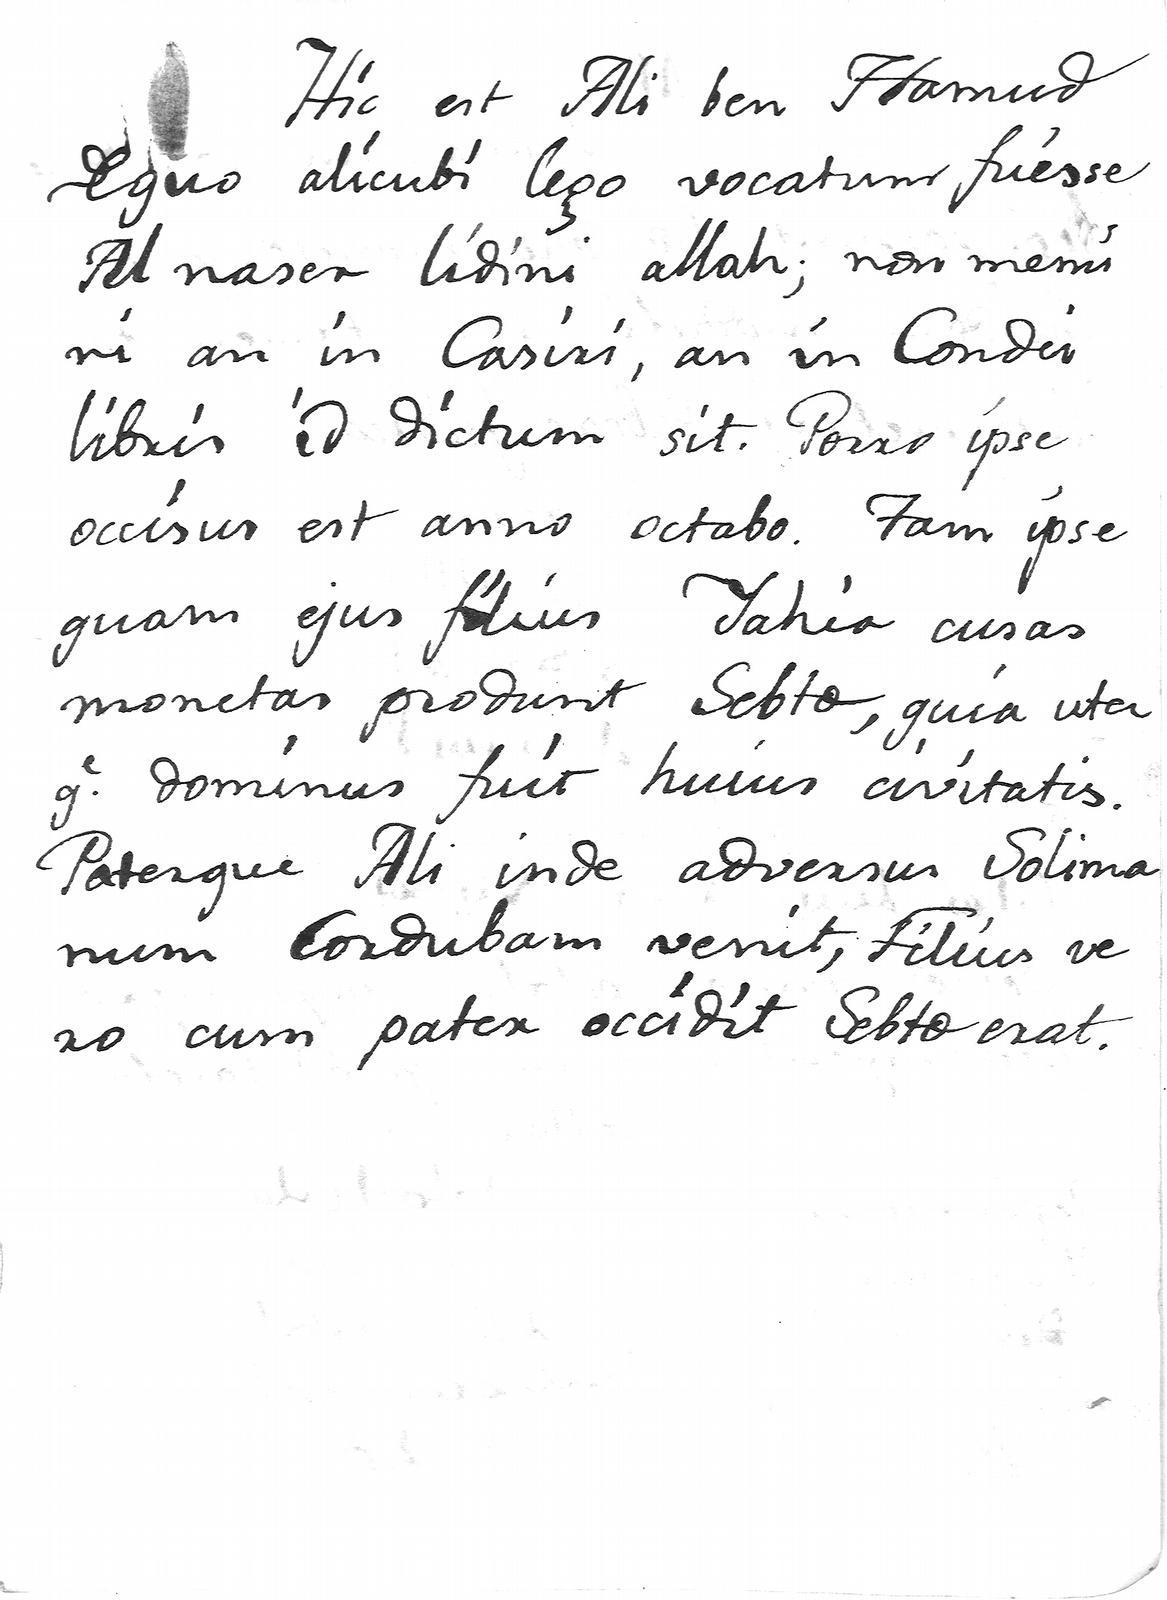 Hic est Ali ben Hamud
De quo alicubi lego vocatum fuisse
Al naser lidini allah; non memi
ni an in Casiri, an in Condei
libris id dictum sit. Porro ipse
occisus est anno octabo. Tam ipse
quam ejus filius Jahia cusas
monetas produnt Sebtæ, quia uter
q.e dominus fuit huius civitatis.
Paterque Ali inde adversus Solima
num Cordubam venit, Filius ve
ro cum pater occidit Sebtæ erat.